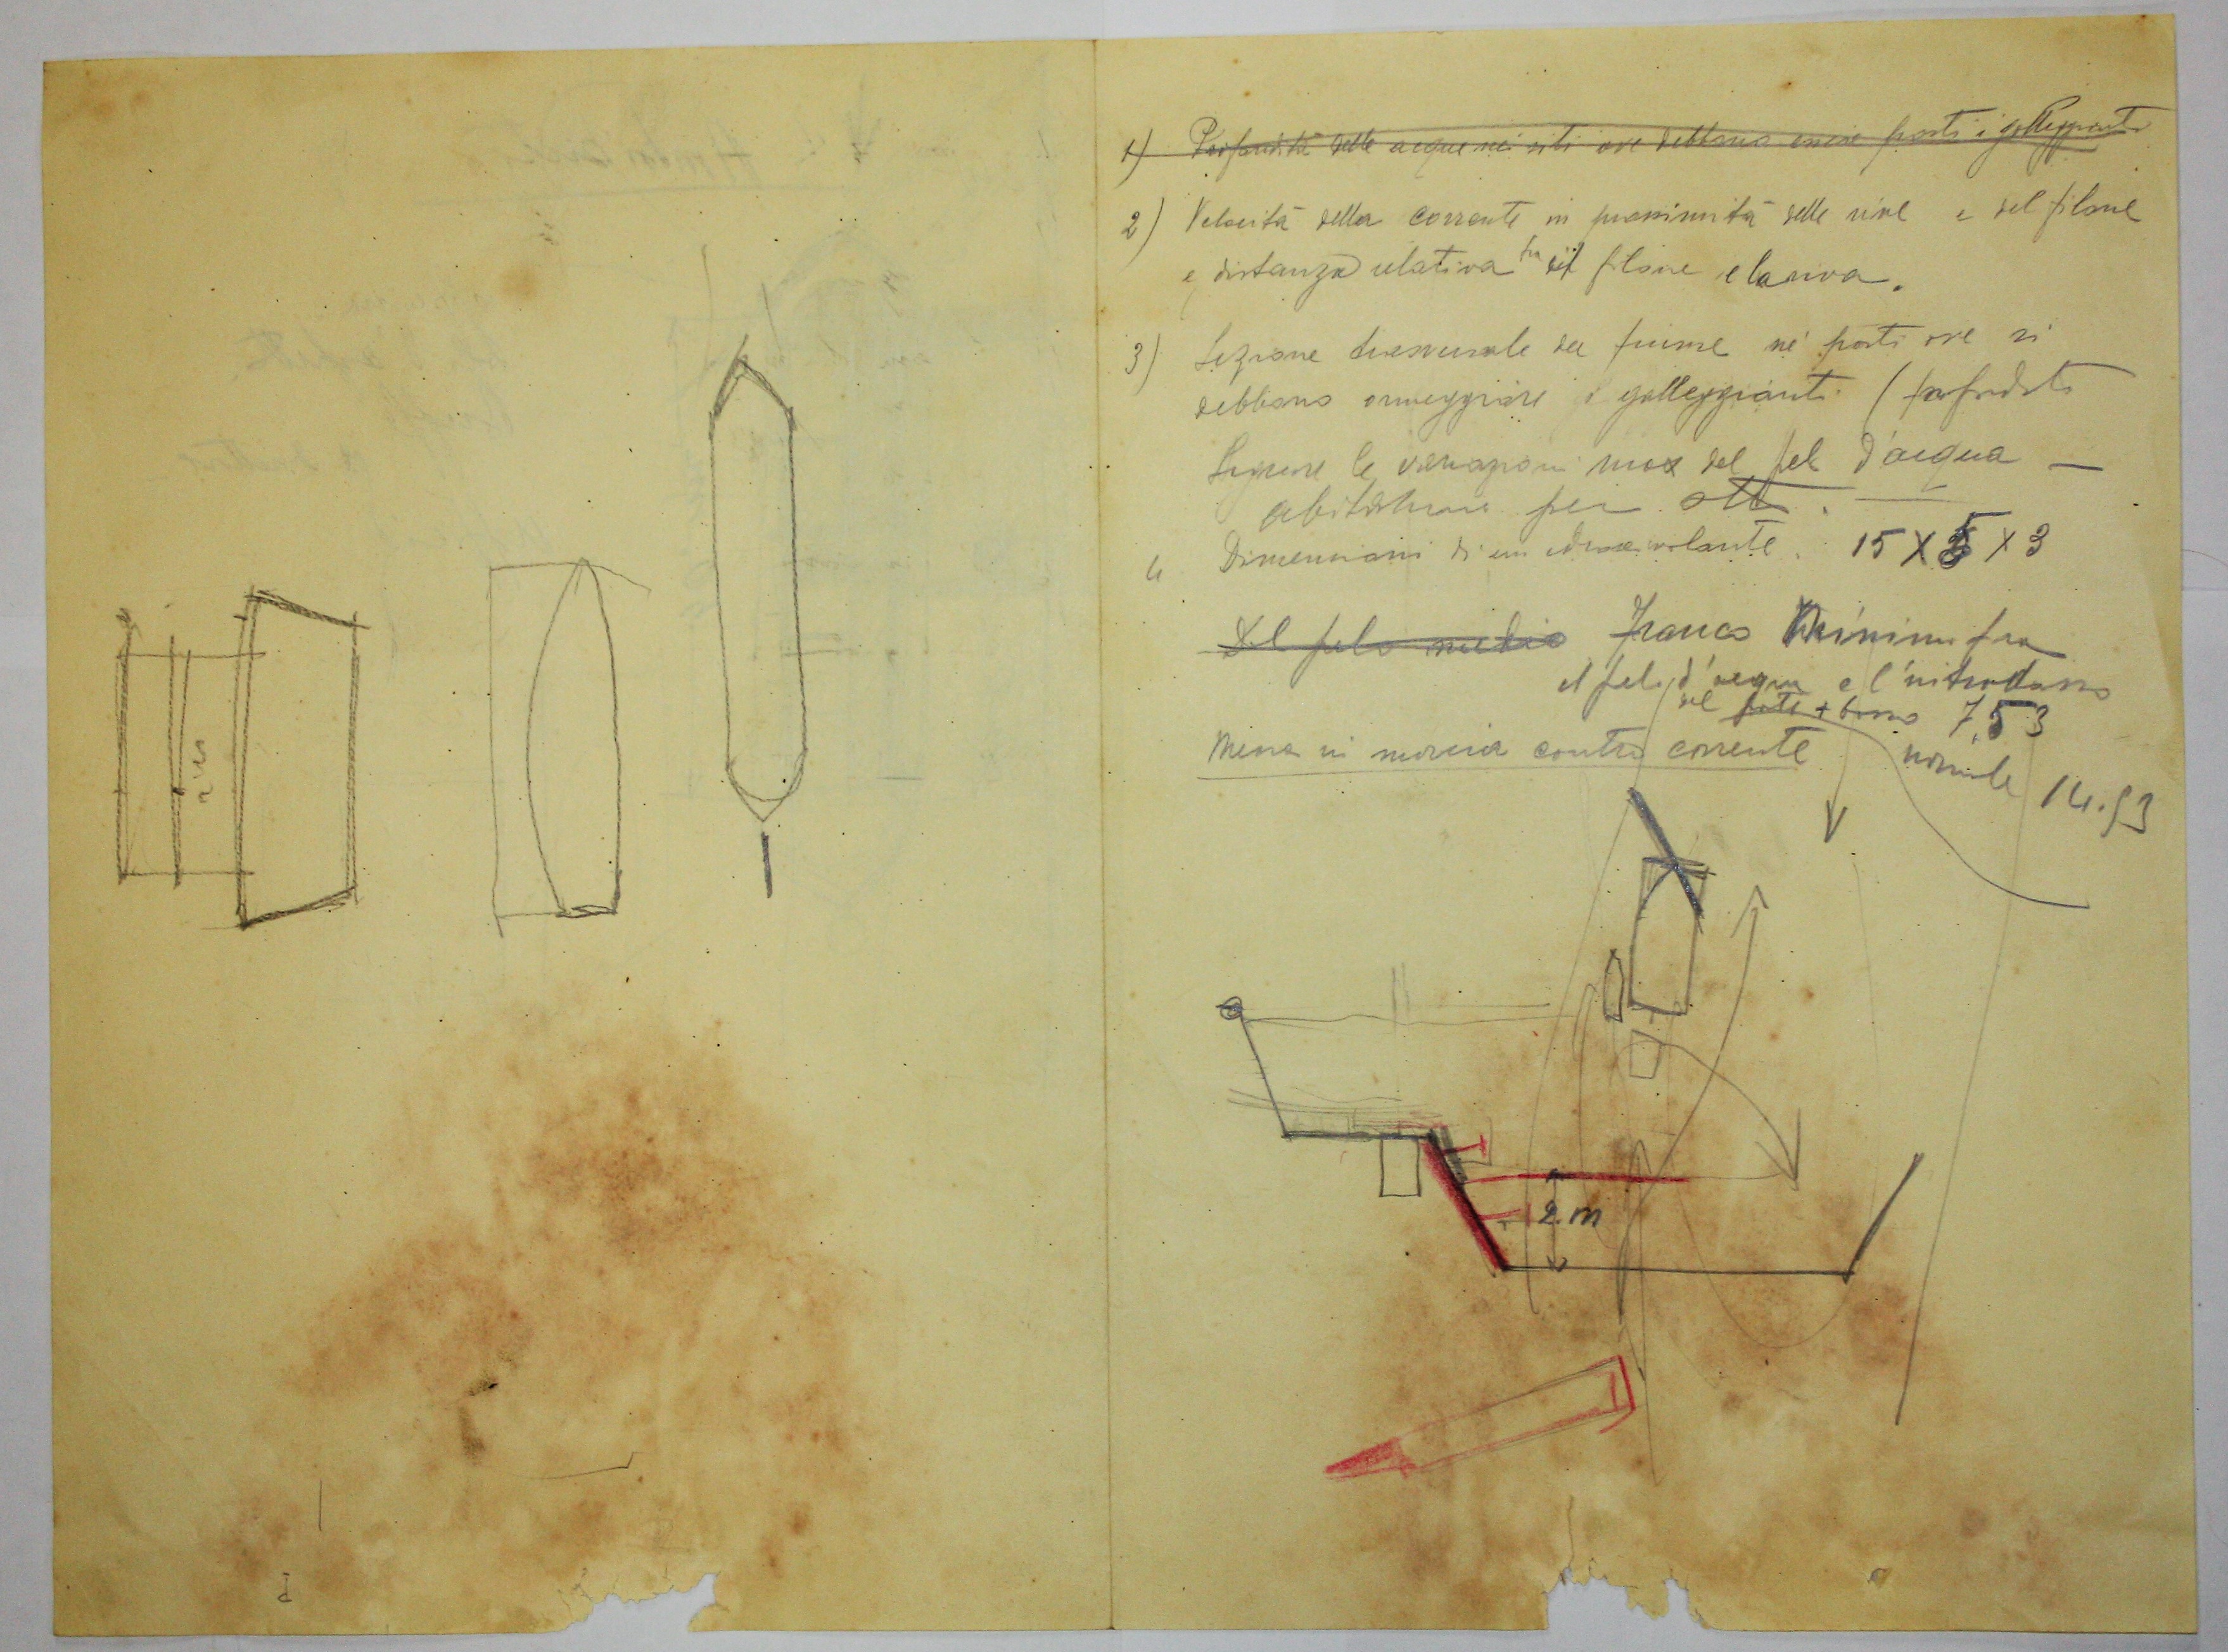 1) Profondità delle acque nei siti ove debbano essere posti i galleggianti
2) Velocità della corrente in prossimità delle rive e del filone
e distanza relativa fra il filone e la riva.
3) Sezione trasversale del fiume nei posti ove si
debbano ormeggiare i galleggianti (profondità
Segnare le variazioni max del pelo d'acqua —
abitazione per
4 Dimensioni di un idrovolante. 15 X 5 X 3
Il pelo medio Franco Minimo fra
il pelo d'acqua e l'intradosso
del ponte + basso 7,53
normale 14.53
Messa in marcia contro corrente
2 m